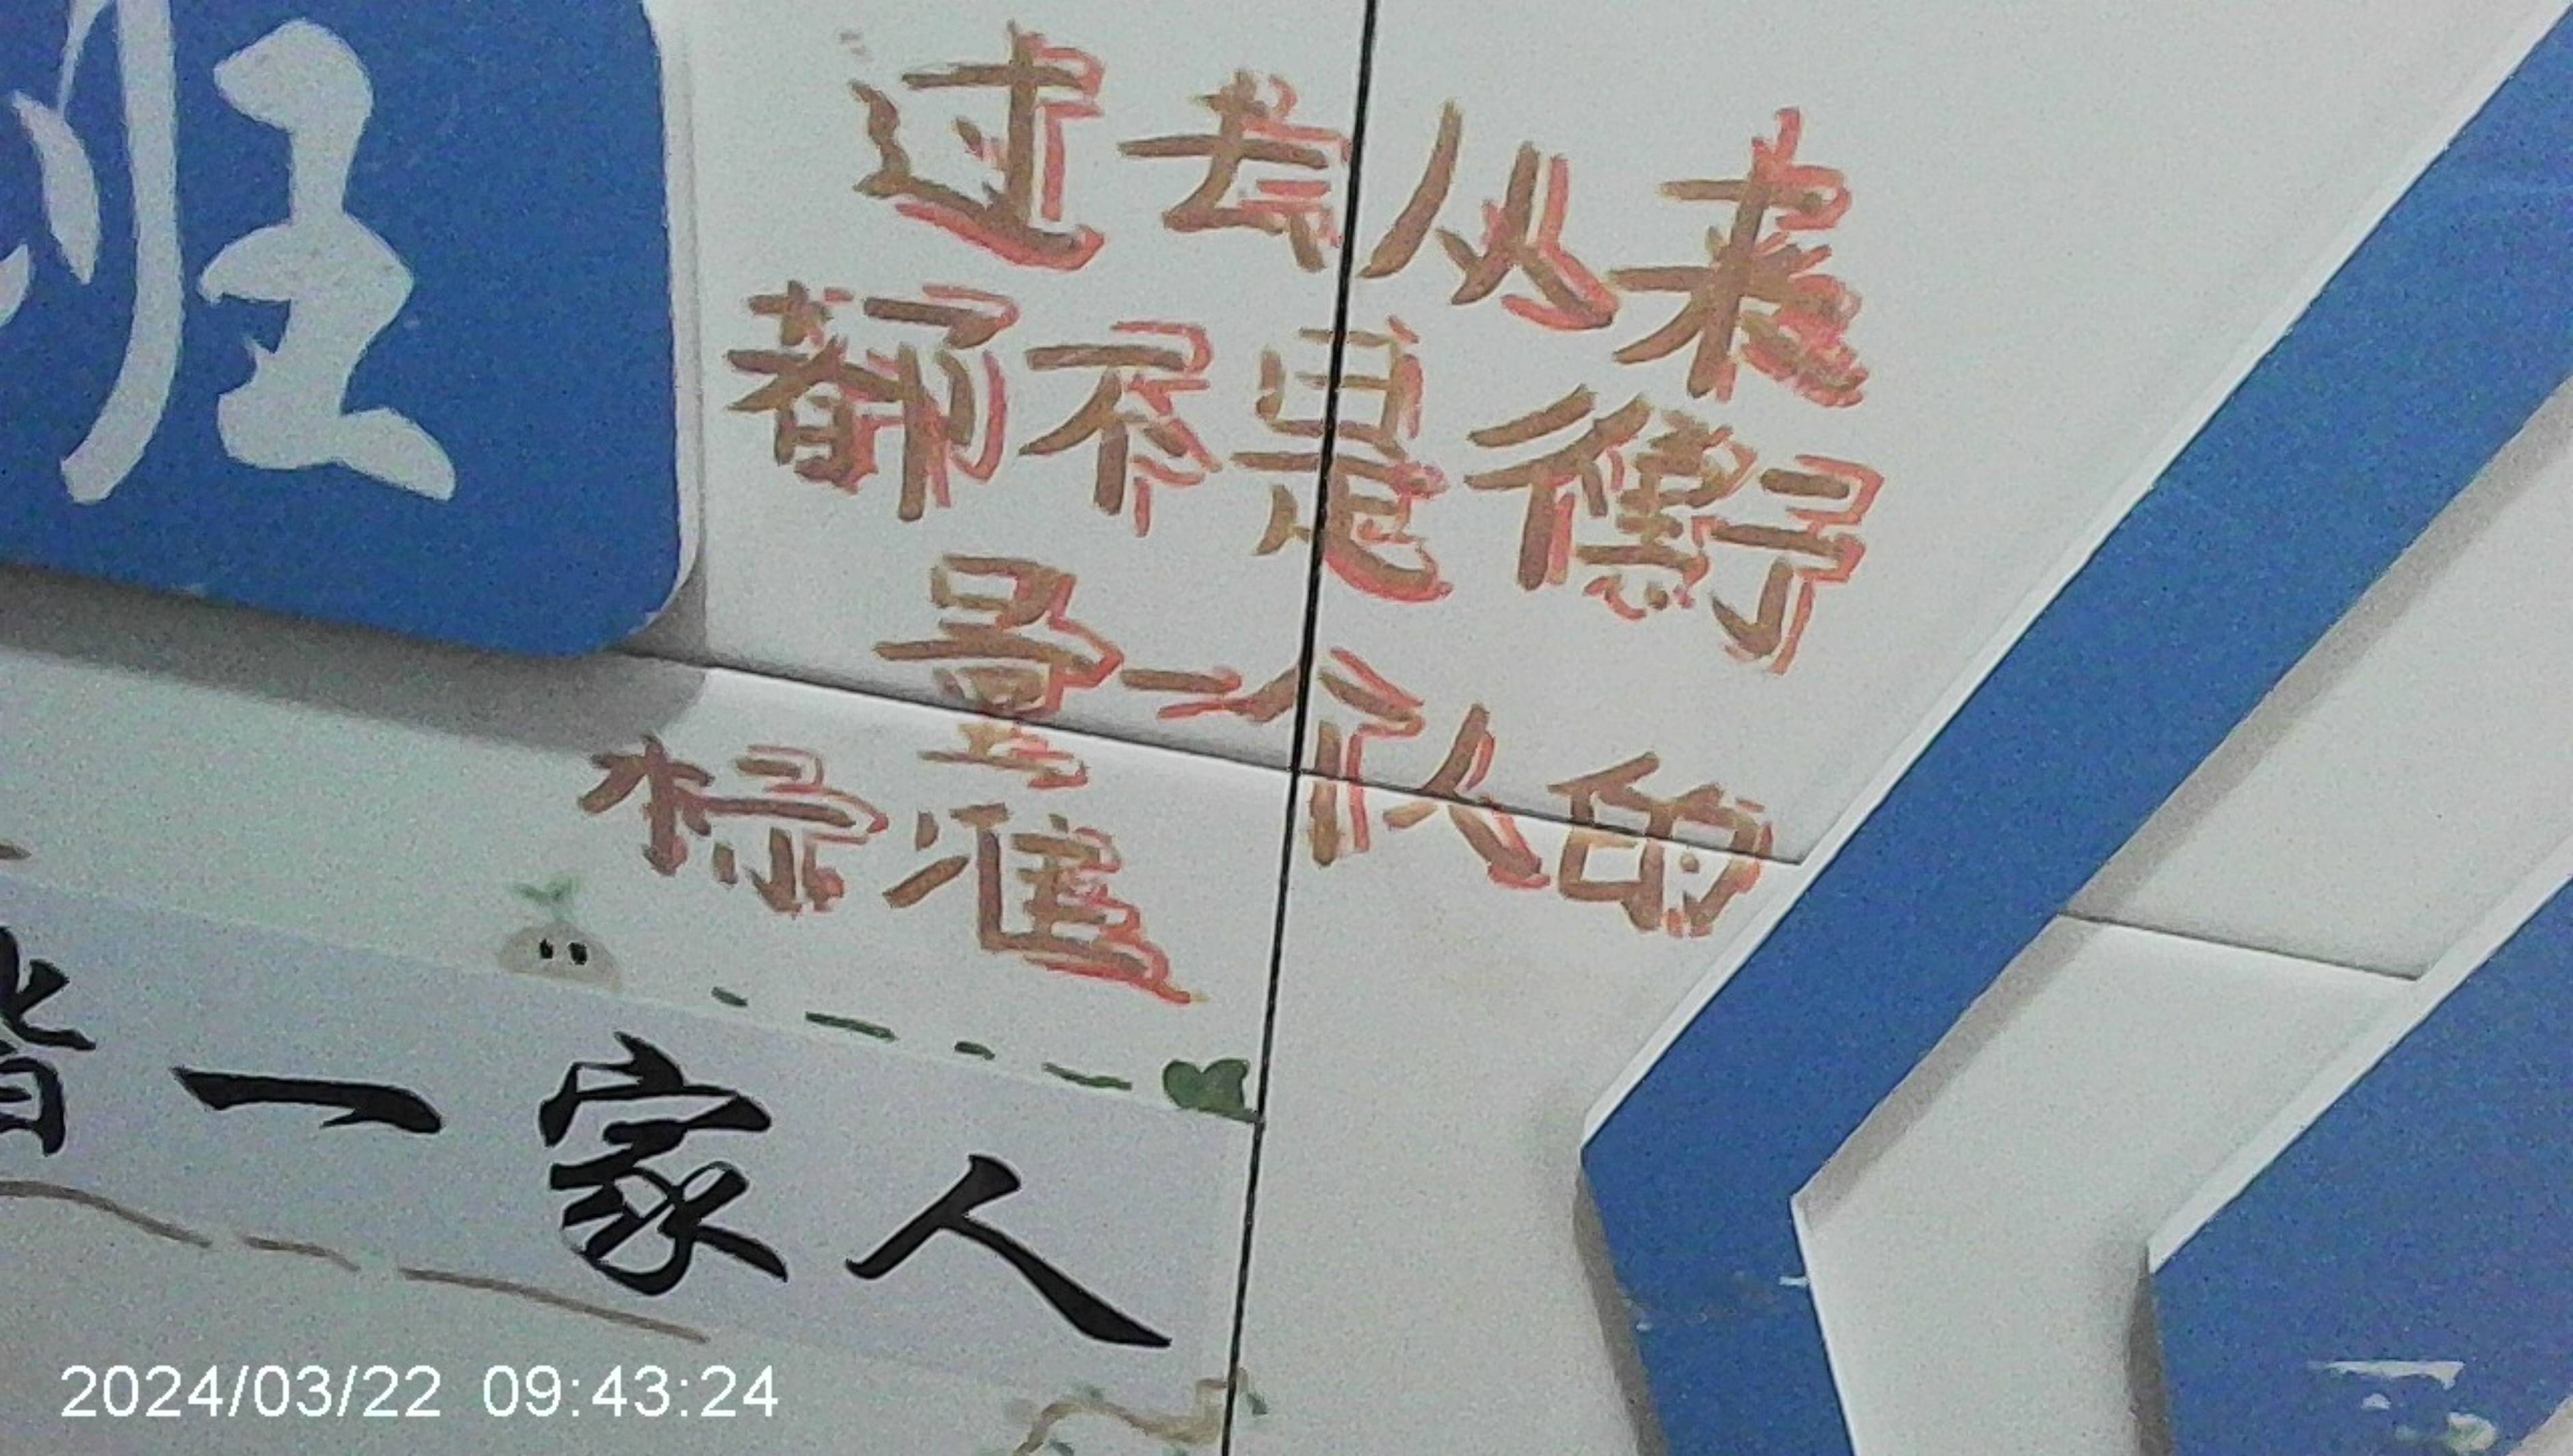 班
过去从来
都不是衡
量一个人的
标准
皆一家人
2024/03/22 09:43:24